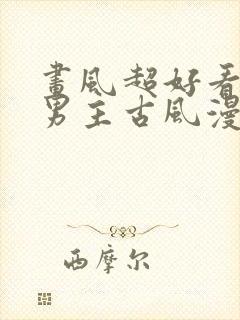 畫風超好看
男主古風漫
西摩尔